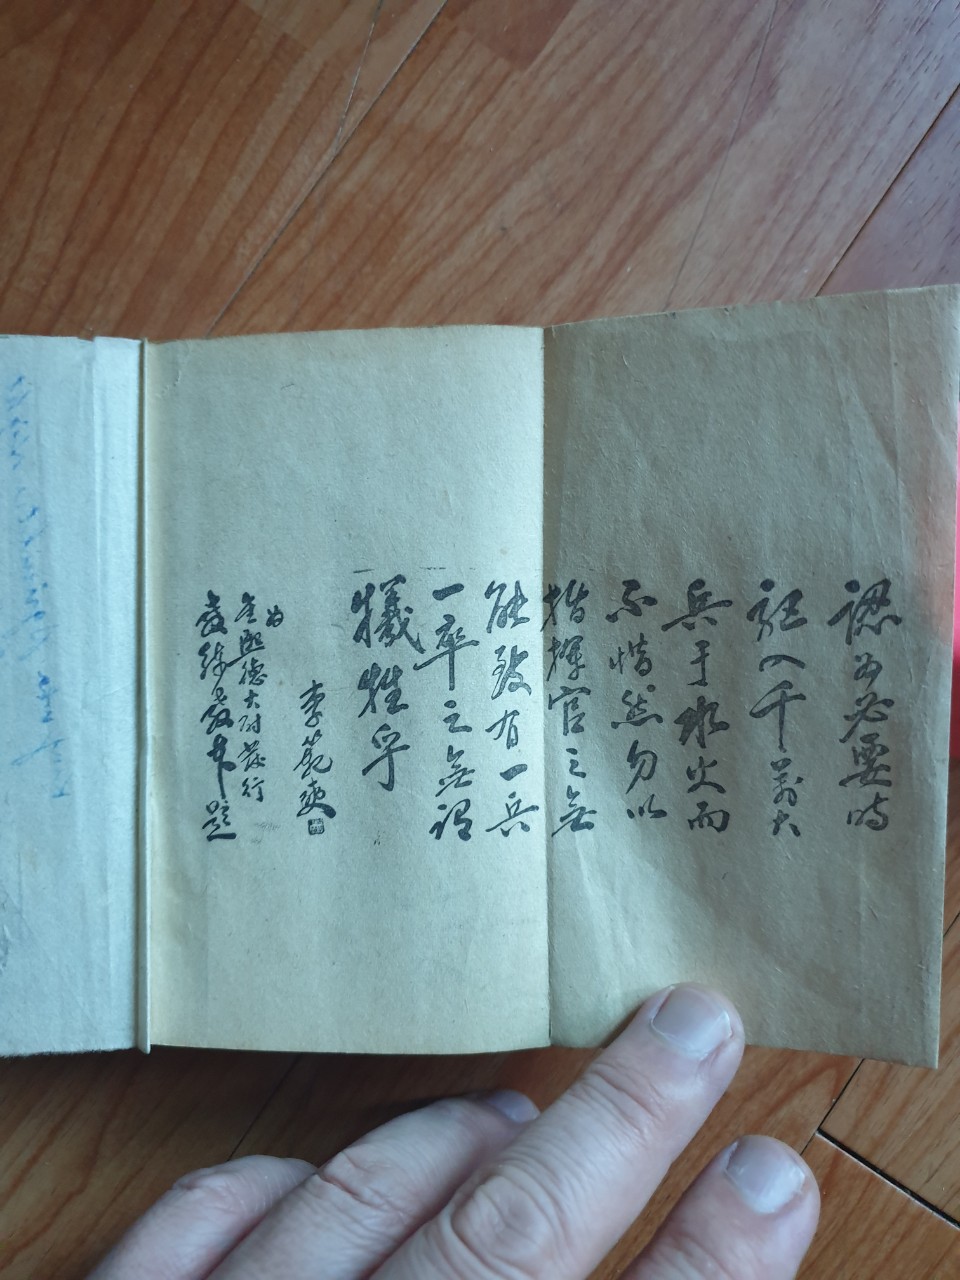 認為必要時
駈入千萬大
兵于水火而
不惜然勿以
指揮官之無
能致有一兵
一卒之無謂
犧牲乎
李範奭
為
金熙德大尉發行
練 題